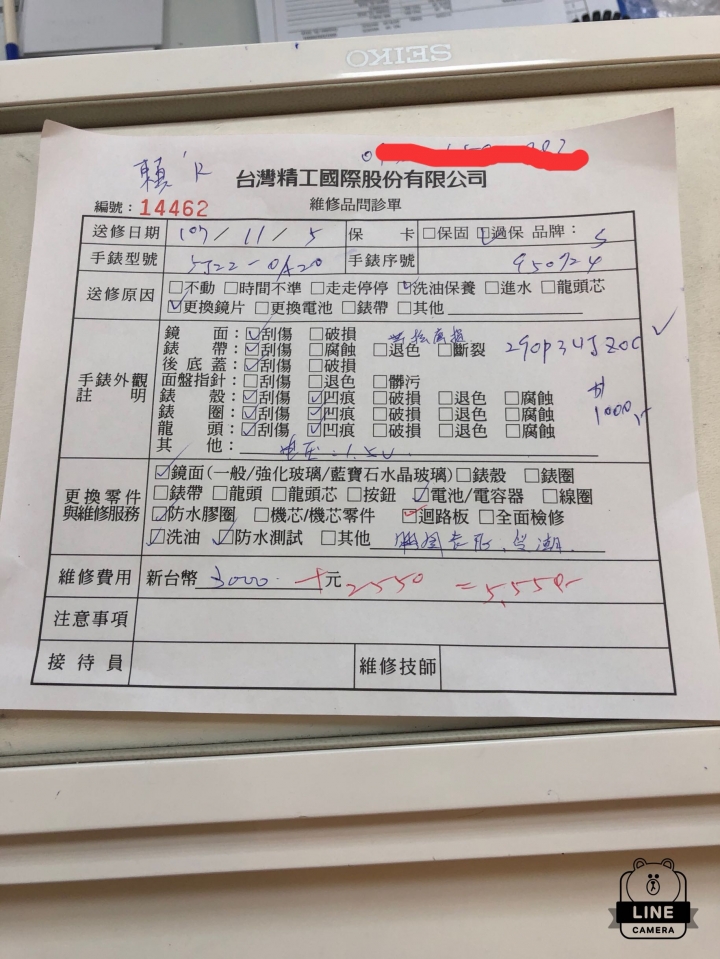 SEIKO
賴 'R
台灣精工國際股份有限公司
編號：14462 維修品問診單
送修日期 107/11/5 保卡 □保固 ☑過保 品牌：S
手錶型號 5J22-0A20 手錶序號 950724
送修原因 □不動 □時間不準 □走走停停 ☑洗油保養 □進水 □龍頭芯
☑更換鏡片 □更換電池 □錶帶 □其他
手錶外觀註明
鏡面：☑刮傷 □破損
錶帶：☑刮傷 □腐蝕 □退色 □斷裂 290P34JZ0C
後底蓋：☑刮傷 □破損
面盤指針：□刮傷 □退色 □髒污
錶殼：☑刮傷 ☑凹痕 □破損 □退色 □腐蝕
錶圈：☑刮傷 ☑凹痕 □破損 □退色 □腐蝕 1000.-
龍頭：☑刮傷 ☑凹痕 □破損 □退色 □腐蝕
其他：電压：1.5V
更換零件與維修服務
☑鏡面(一般/強化玻璃/藍寶石水晶玻璃) □錶殼 □錶圈
□錶帶 □龍頭 □龍頭芯 □按鈕 ☑電池/電容器 □線圈
☑防水膠圈 □機芯/機芯零件 ☑迴路板 □全面檢修
☑洗油 ☑防水測試 □其他
維修費用 新台幣 3000 元 + 2550 = 5,550.-
注意事項
接待員 維修技師
LINE
CAMERA